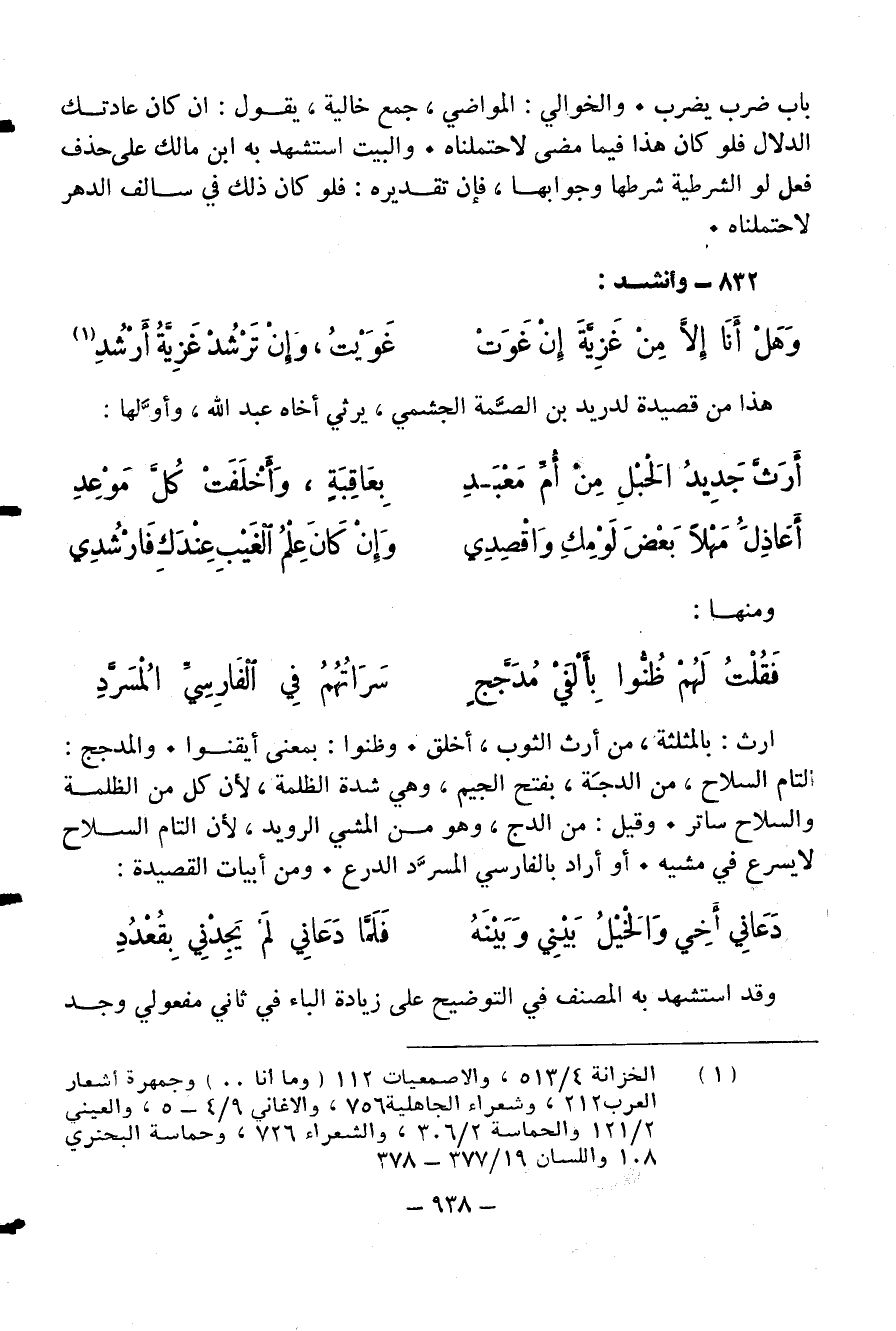 باب ضرب يضرب • والخوالي : المواضي ، جمع خالية ، يقــول : ان كان عادتــك
الدلال فلو كان هذا فيما مضى لاحتملناه • والبيت استشهد به ابن مالك على حذف
فعل لو الشرطية شرطها وجوابهــا ، فإن تقــديره : فلو كان ذلك في ســالف الدهر
لاحتملناه •
٨٣٢ – وأنشــد :
وَهَلْ أَنَا إِلاَّ مِنْ غَزِيَّةَ إِنْ غَوَتْ غَوَيْتُ ، وَإِنْ تَرْشُدْ غَزِيَّةُ أَرْشُدِ(١)
هذا من قصيدة لدريد بن الصمَّة الجشمي ، يرثي أخاه عبد الله ، وأوَّلها :
أَرَثَّ جَدِيدُ الْحَبْلِ مِنْ أُمِّ مَعْبَـدِ بِعَاقِبَةٍ ، وَأَخْلَفَتْ كُلَّ مَوْعِدِ
أَعَاذِلَُ مَهْلاً بَعْضَ لَوْمِكِ وَاقْصِدِي وَإِنْ كَانَ عِلْمُ الْغَيْبِ عِنْدَكِ فَارْشُدِي
ومنهــا :
فَقُلْتُ لَهُمْ ظُنُّوا بِأَلْفَيْ مُدَجَّجٍ سَرَاتُهُمُ فِي الْفَارِسِيِّ الْمُسَرَّدِ
ارث : بالمثلثة ، من أرث الثوب ، أخلق • وظنوا : بمعنى أيقنــوا • والمدجج :
التام السلاح ، من الدجَّة ، بفتح الجيم ، وهي شدة الظلمة ، لأن كل من الظلمــة
والسلاح ساتر • وقيل : من الدج ، وهو مــن المشي الرويد ، لأن التام الســلاح
لايسرع في مشيه • أو أراد بالفارسي المسرَّد الدرع • ومن أبيات القصيدة :
دَعَانِي أَخِي وَالْخَيْلُ بَيْنِي وَبَيْنَهُ فَلَمَّا دَعَانِي لَمْ يَجِدْنِي بِقُعْدُدِ
وقد استشهد به المصنف في التوضيح على زيادة الباء في ثاني مفعولي وجــد
(١) الخزانة ٥١٣/٤ ، والاصمعيات ١١٢ ( وما أنا .. ) وجمهرة أشعار
العرب٢١٢ ، وشعراء الجاهلية٧٥٦ ، والاغاني ٤/٩ – ٥ ، والعيني
١٢١/٢ والحماسة ٣٠٦/٢ ، والشعراء ٧٢٦ ، وحماسة البحتري
١٠٨ واللسان ٣٧٧/١٩ – ٣٧٨
– ٩٣٨ –